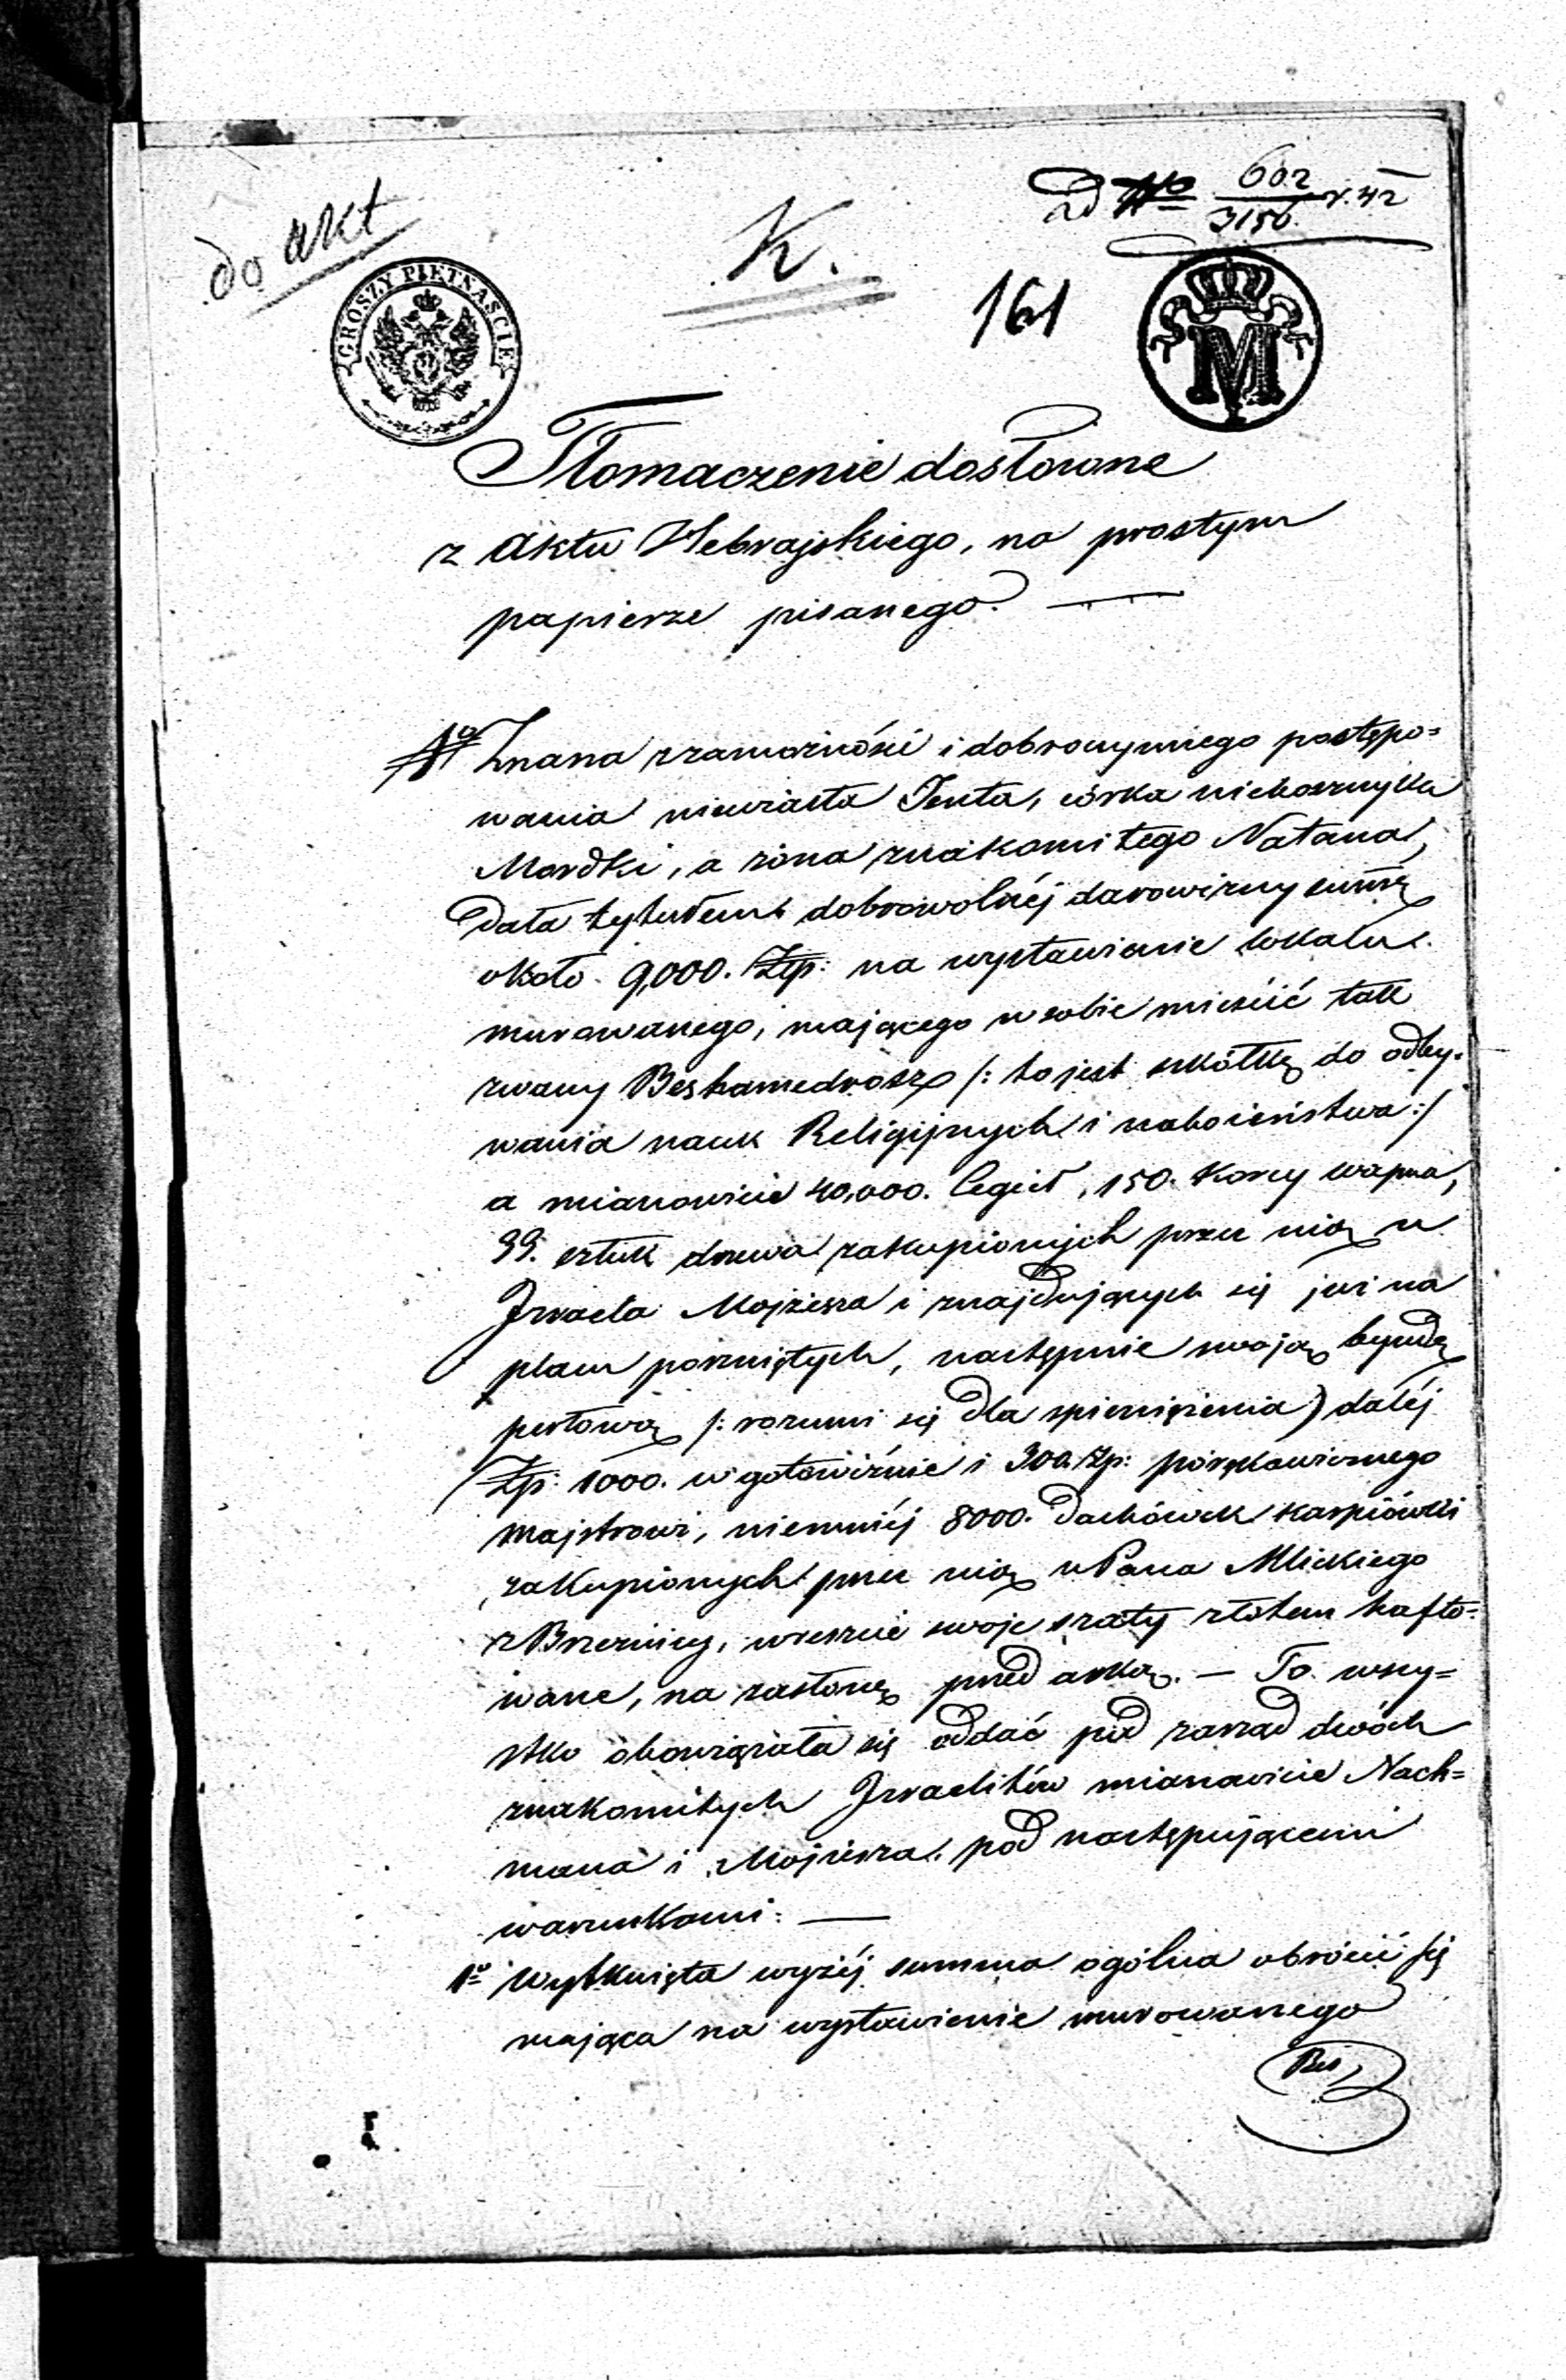 do akt
ad No 602/3156. r. 42
K.
161
GROSZY PIĘTNAŚCIE
M
Tłomaczenie dosłowne
z Aktu Hebrajskiego, na prostym
papierze pisanego. —
Znana z zamożności i dobroczynnego postępo=
wania niewiasta Jenta, córka nieboszczyka
Mordki, a żona znakomitego Natana,
dała tytułem dobrowolnéj darowizny summę
około 9,000. Złp: na wystawienie lokalu
murowanego, mającego w sobie mieścić tak
zwany Beshamedrosz /: to jest szkółkę do odby-
wania nauk Religijnych i nabożeństwa :/
a mianowicie 40,000. Cegieł, 150. Korcy wapna,
99. sztuk drzewa zakupionych przez nią u
Izraela Mojżesza i znajdujących się już na
placu porzniętych, następnie swoją
perłową /: rozumi się dla spieniężenia) daléj
Złp: 1000. w gotowiźnie i 300. Złp: porękawicznego
majstrowi, niemniéj 8000. Dachówek karpiówki
zakupionych przez nią u Pana Mlickiego
z Brzeźnicy, wreszcie swoje szaty złotem hafto=
wane, na zasłonę przed arką. — To wszy=
stko obowiązała się oddać pod zarząd dwóch
znakomitych Izraelitów mianowicie Nach=
mana i Mojżesza pod następującemi
warunkami: —
1o Wytknięta wyżéj summa ogólna obrócić się
mająca na wystawienie murowanego
Bes